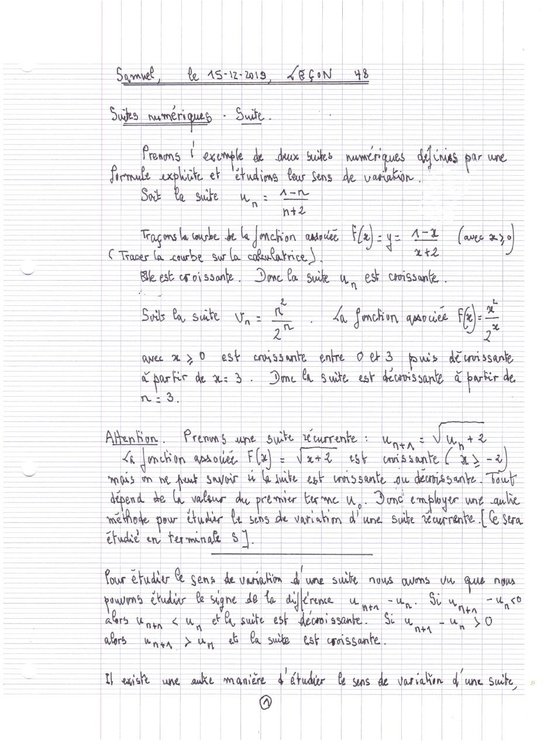 Samuel, le 15-12-2019, LEÇON 48
Suites numériques. Suite.
Prenons l'exemple de deux suites numériques définies par une
formule explicite et étudions leur sens de variation.
Soit la suite u_n = (1-n)/(n+2)
Traçons la courbe de la fonction associée f(x) = y = (1-x)/(x+2) (avec x ≥ 0)
(Tracer la courbe sur la calculatrice).
Elle est croissante. Donc la suite u_n est croissante.
Soit la suite v_n = n²/2^n. La fonction associée f(x) = x²/2^x
avec x ≥ 0 est croissante entre 0 et 3 puis décroissante
à partir de x = 3. Donc la suite est décroissante à partir de
n = 3.
Attention. Prenons une suite récurrente : u_{n+1} = √(u_n + 2)
La fonction associée F(x) = √(x+2) est croissante (x ≥ -2)
mais on ne peut savoir si la suite est croissante ou décroissante. Tout
dépend de la valeur du premier terme u_0. Donc employer une autre
méthode pour étudier le sens de variation d'une suite récurrente. [Ce sera
étudié en terminale S].
Pour étudier le sens de variation d'une suite nous avons vu que nous
pouvons étudier le signe de la différence u_{n+1} - u_n. Si u_{n+1} - u_n < 0
alors u_{n+1} < u_n et la suite est décroissante. Si u_{n+1} - u_n > 0
alors u_{n+1} > u_n et la suite est croissante.
Il existe une autre manière d'étudier le sens de variation d'une suite,
1